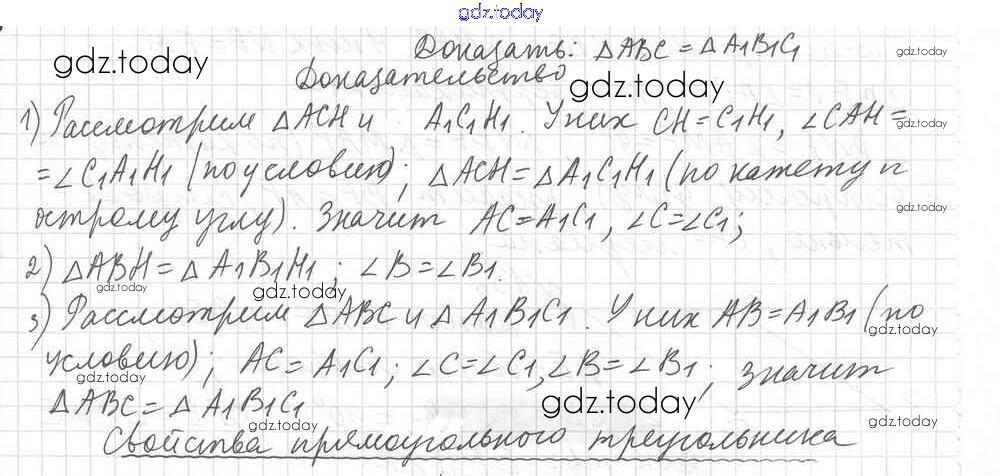 gdz.today
Доказать: △ABC = △A1B1C1
gdz.today
gdz.today
Доказательство
gdz.today
1) Рассмотрим △ACH и A1C1H1. У них CH = C1H1, ∠CAH =
gdz.today
= ∠C1A1H1 (по условию); △ACH = △A1C1H1 (по катету и
острому углу). Значит AC = A1C1, ∠C = ∠C1;
gdz.today
2) △ABH = △A1B1H1; ∠B = ∠B1.
gdz.today
gdz.today
3) Рассмотрим △ABC и △A1B1C1. У них AB = A1B1 (по
gdz.today
условию); AC = A1C1; ∠C = ∠C1, ∠B = ∠B1; значит
gdz.today
△ABC = △A1B1C1
gdz.today
gdz.today
Свойства прямоугольного треугольника